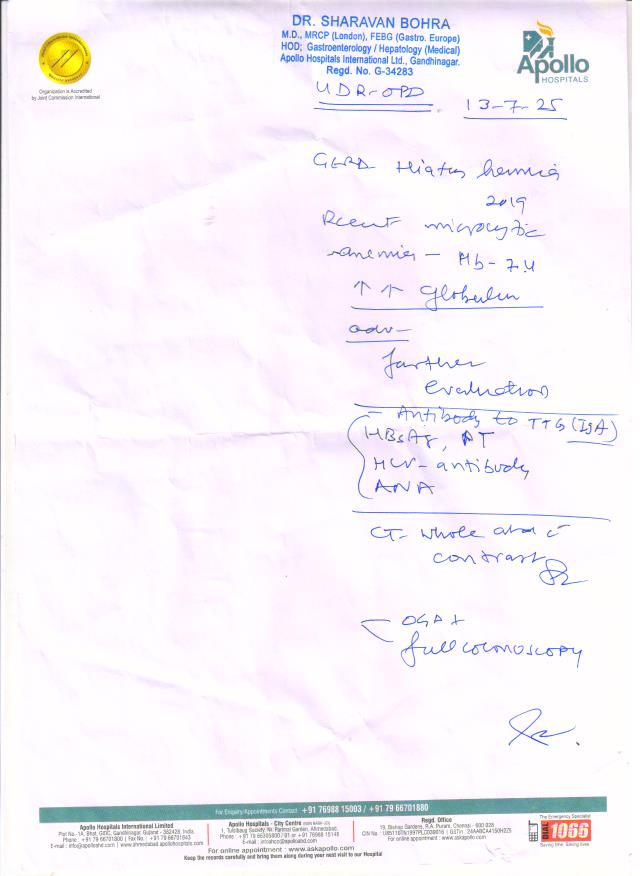 DR. SHARAVAN BOHRA
M.D., MRCP (London), FEBG (Gastro. Europe)
HOD; Gastroenterology / Hepatology (Medical)
Apollo Hospitals International Ltd., Gandhinagar.
Regd. No. G-34283
Apollo
HOSPITALS
Organization is Accredited
by Joint Commission International
UDR-OPD 13-7-25
GERD Hiatus hernia
2019
Recent microcytic
anemia - Hb - 7.4
↑ ↑ Globulin
adv-
further
evaluation
- Antibody to TTG (IgA)
HBsAg, PT
HCV - antibody
ANA
CT- whole abd c̄
contrast
OGD +
full colonoscopy
For Enquiry/Appointments Contact : +91 76988 15003 / +91 79 66701880
Apollo Hospitals International Limited
Plot No.-1A, Bhat, GIDC, Gandhinagar, Gujarat - 382428, India.
Phone : +91 79 66701800 | Fax No. : +91 79 66701843
Apollo Hospitals - City Centre
1, Tulsibaug Society, Nr. Parimal Garden, Ahmedabad.
Regd. Office
19, Bishop Gardens, R.A. Puram, Chennai - 600 028
For online appointment : www.askapollo.com
Keep the records carefully and bring them along during your next visit to our Hospital
The Emergency Specialist
DIAL 1066
Saving time. Saving lives.